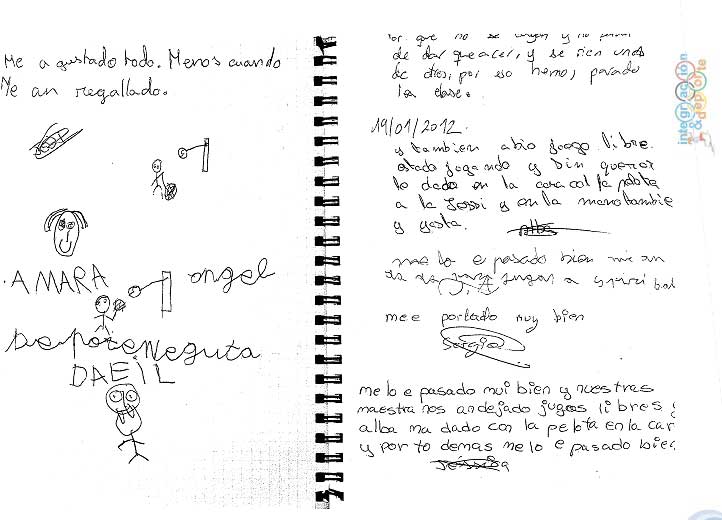 Me a gustado todo. Menos cuando
Me an regallado.
AMARA
angel
DAEIL
por que no se
de dar que acer, y se rien unos
de otros, por eso hemos parado
la clase.
19/01/2012.
y tambien abio juego libre.
estado jugando y sin querer
lo dado en la cara col la pelota
a la Jessi y en la mano tambie
y ysta.
alba
me lo e pasado bien me an
jugar a
mee portado muy bien
Sergio
me lo e pasado mui bien y nuestras
maestra nos an dejado jugos libres y
alba ma dado con la pelota en la car
y por to demas me lo e pasado bien.
Jessica
integración
& deporte